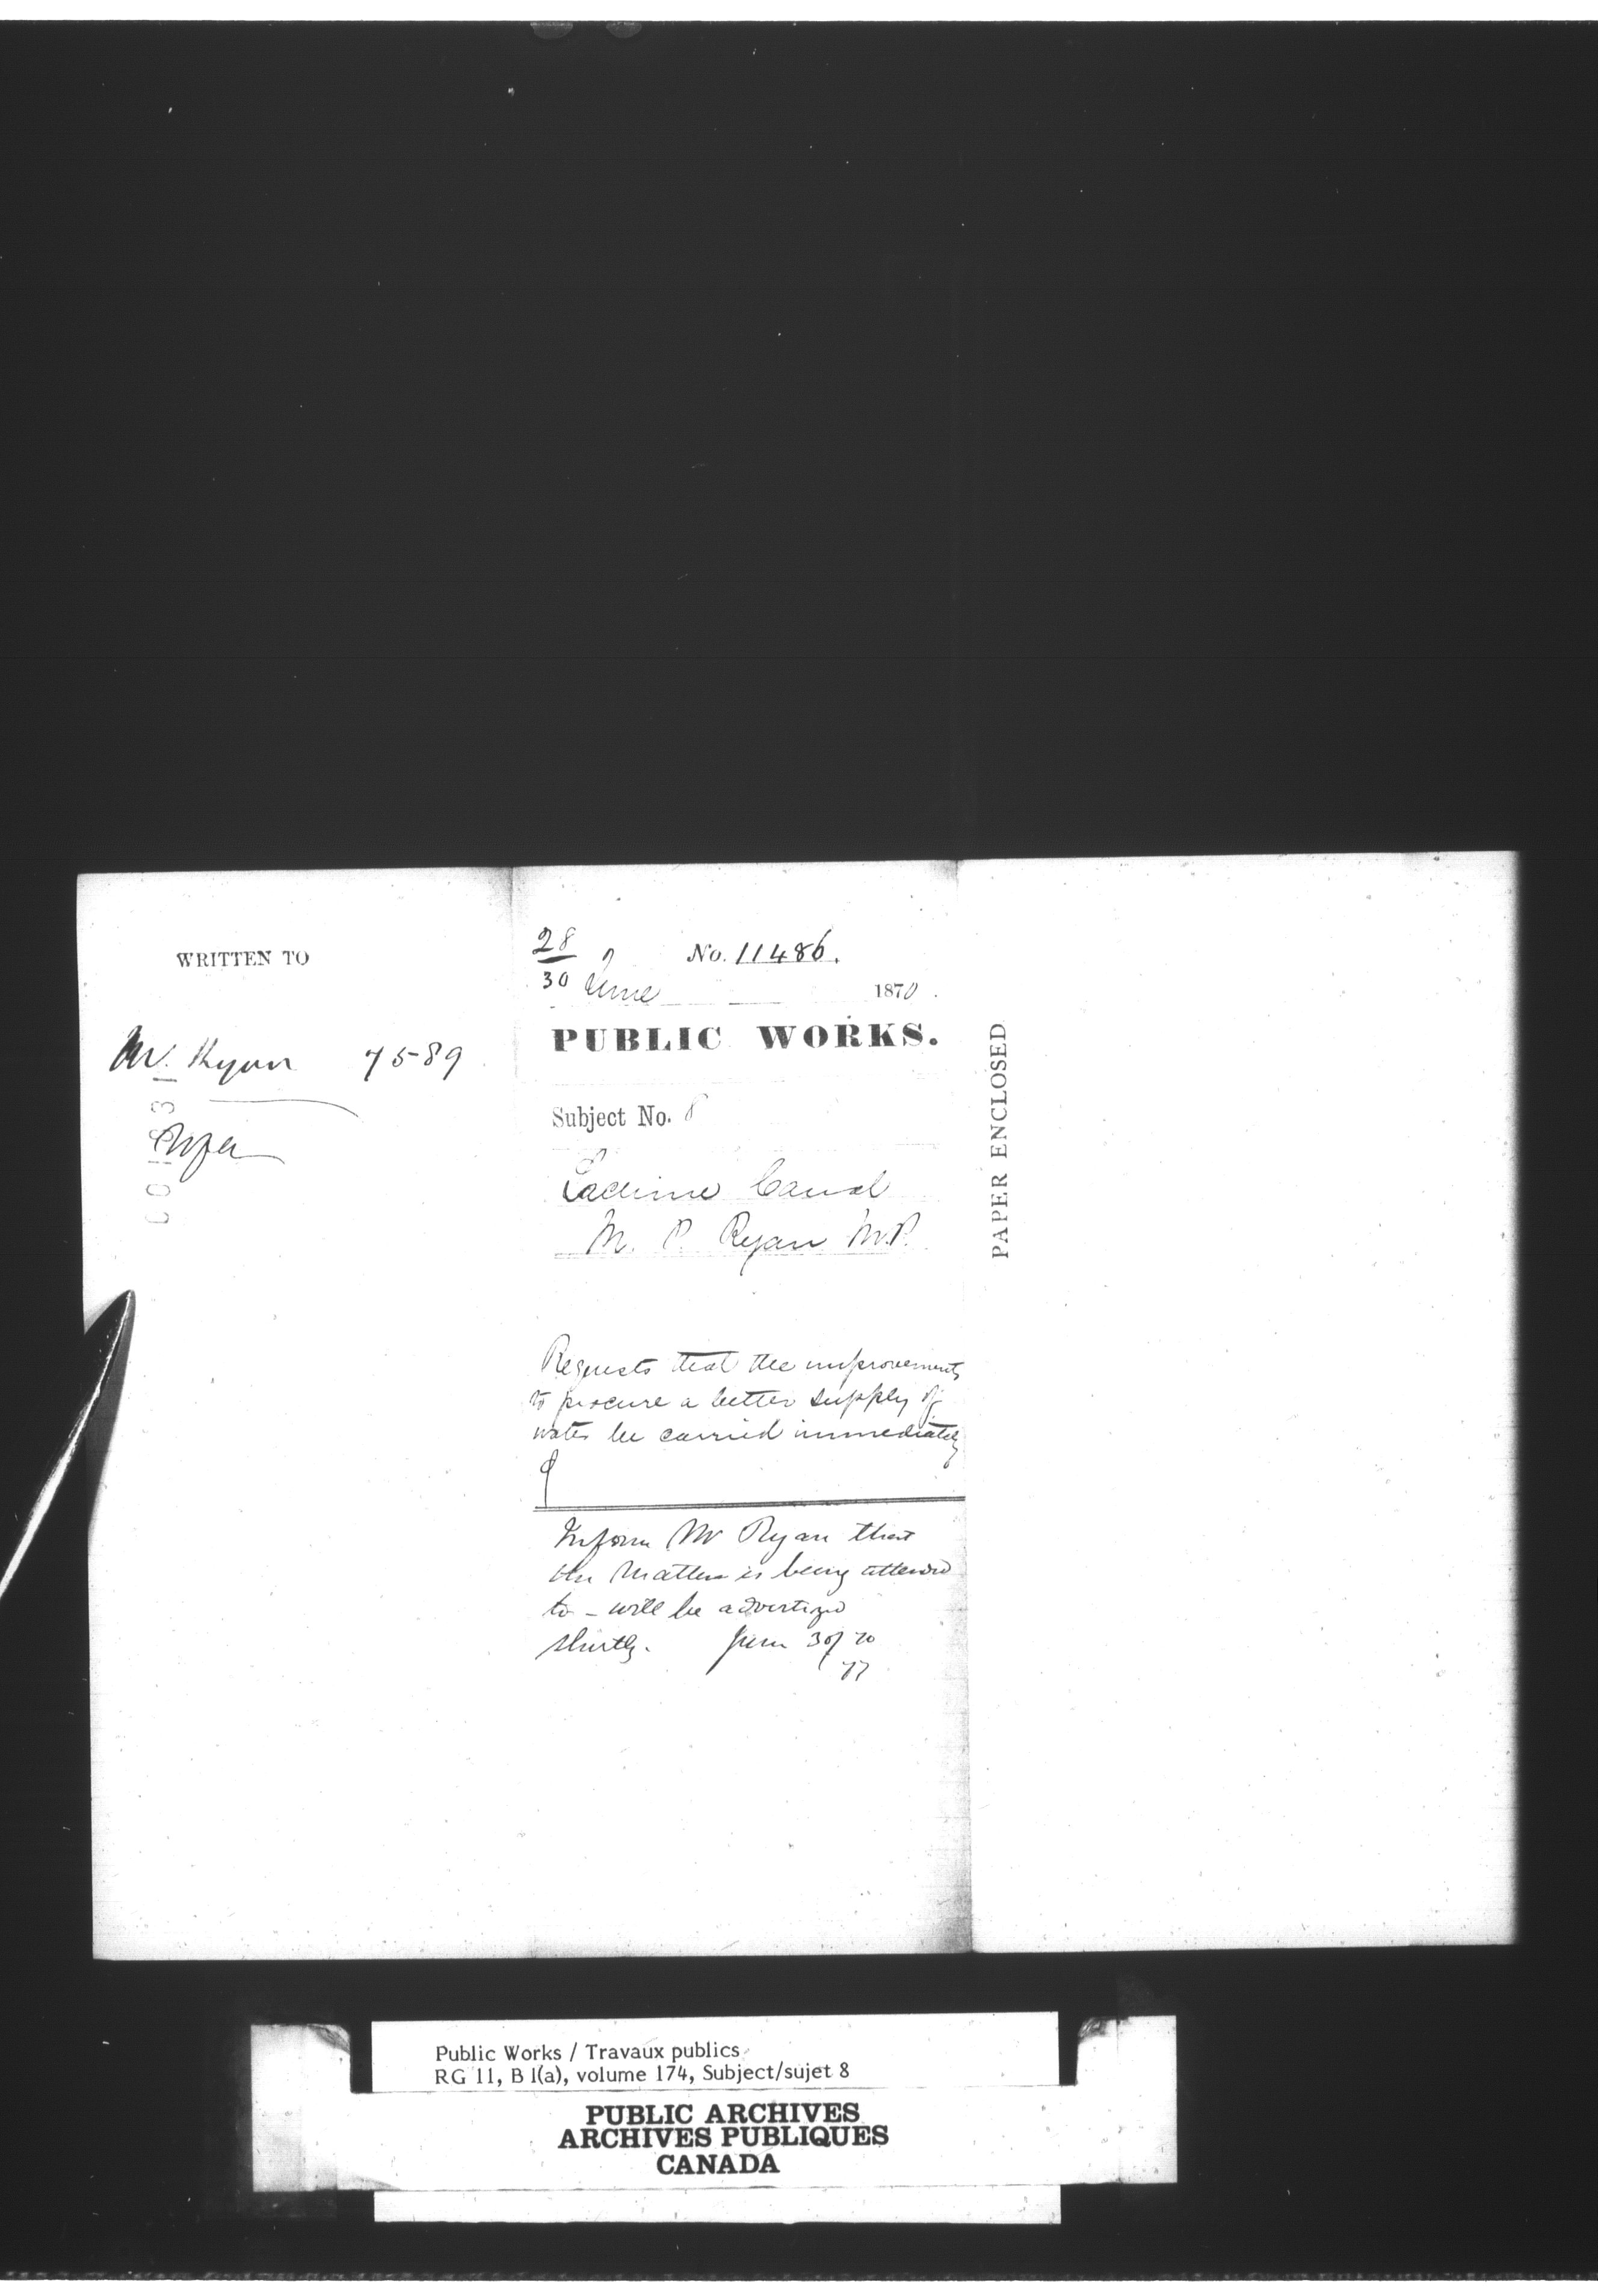 WRITTEN TO
Mr. Ryan 7589
28
30 June 1870.
No. 11486.
PUBLIC WORKS.
Subject No. 8
Lachine Canal
M. P. Ryan M.P.
Requests that the improvements
to procure a better supply of
water be carried immediately
Inform Mr Ryan that
the Matter is being attended
to - will be advertized
shortly. June 30/70
PAPER ENCLOSED
Public Works / Travaux publics
RG 11, B 1(a), volume 174, Subject/sujet 8
PUBLIC ARCHIVES
ARCHIVES PUBLIQUES
CANADA